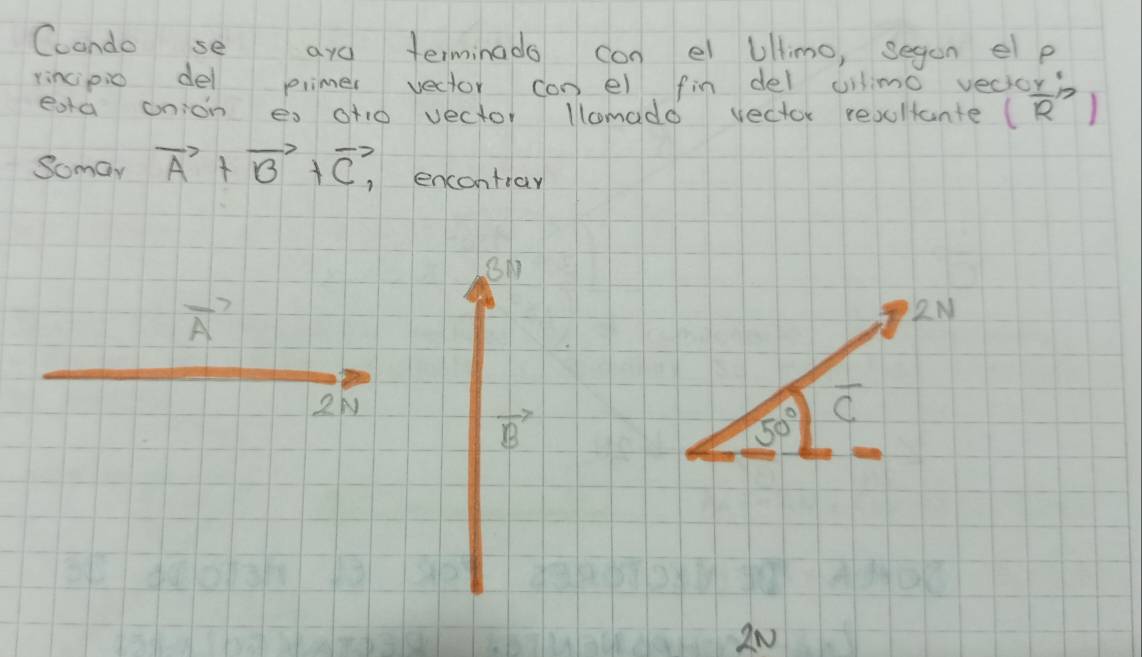 Cuando se aya terminado con el Ultimo, segun el p
rincipio del primer vector con el fin del ultimo vector;
esta unión es otro vector llamado vector resultante (R)
Somar A + B + C, encontrar
A
2N
3N
B
2N
C
50°
2N